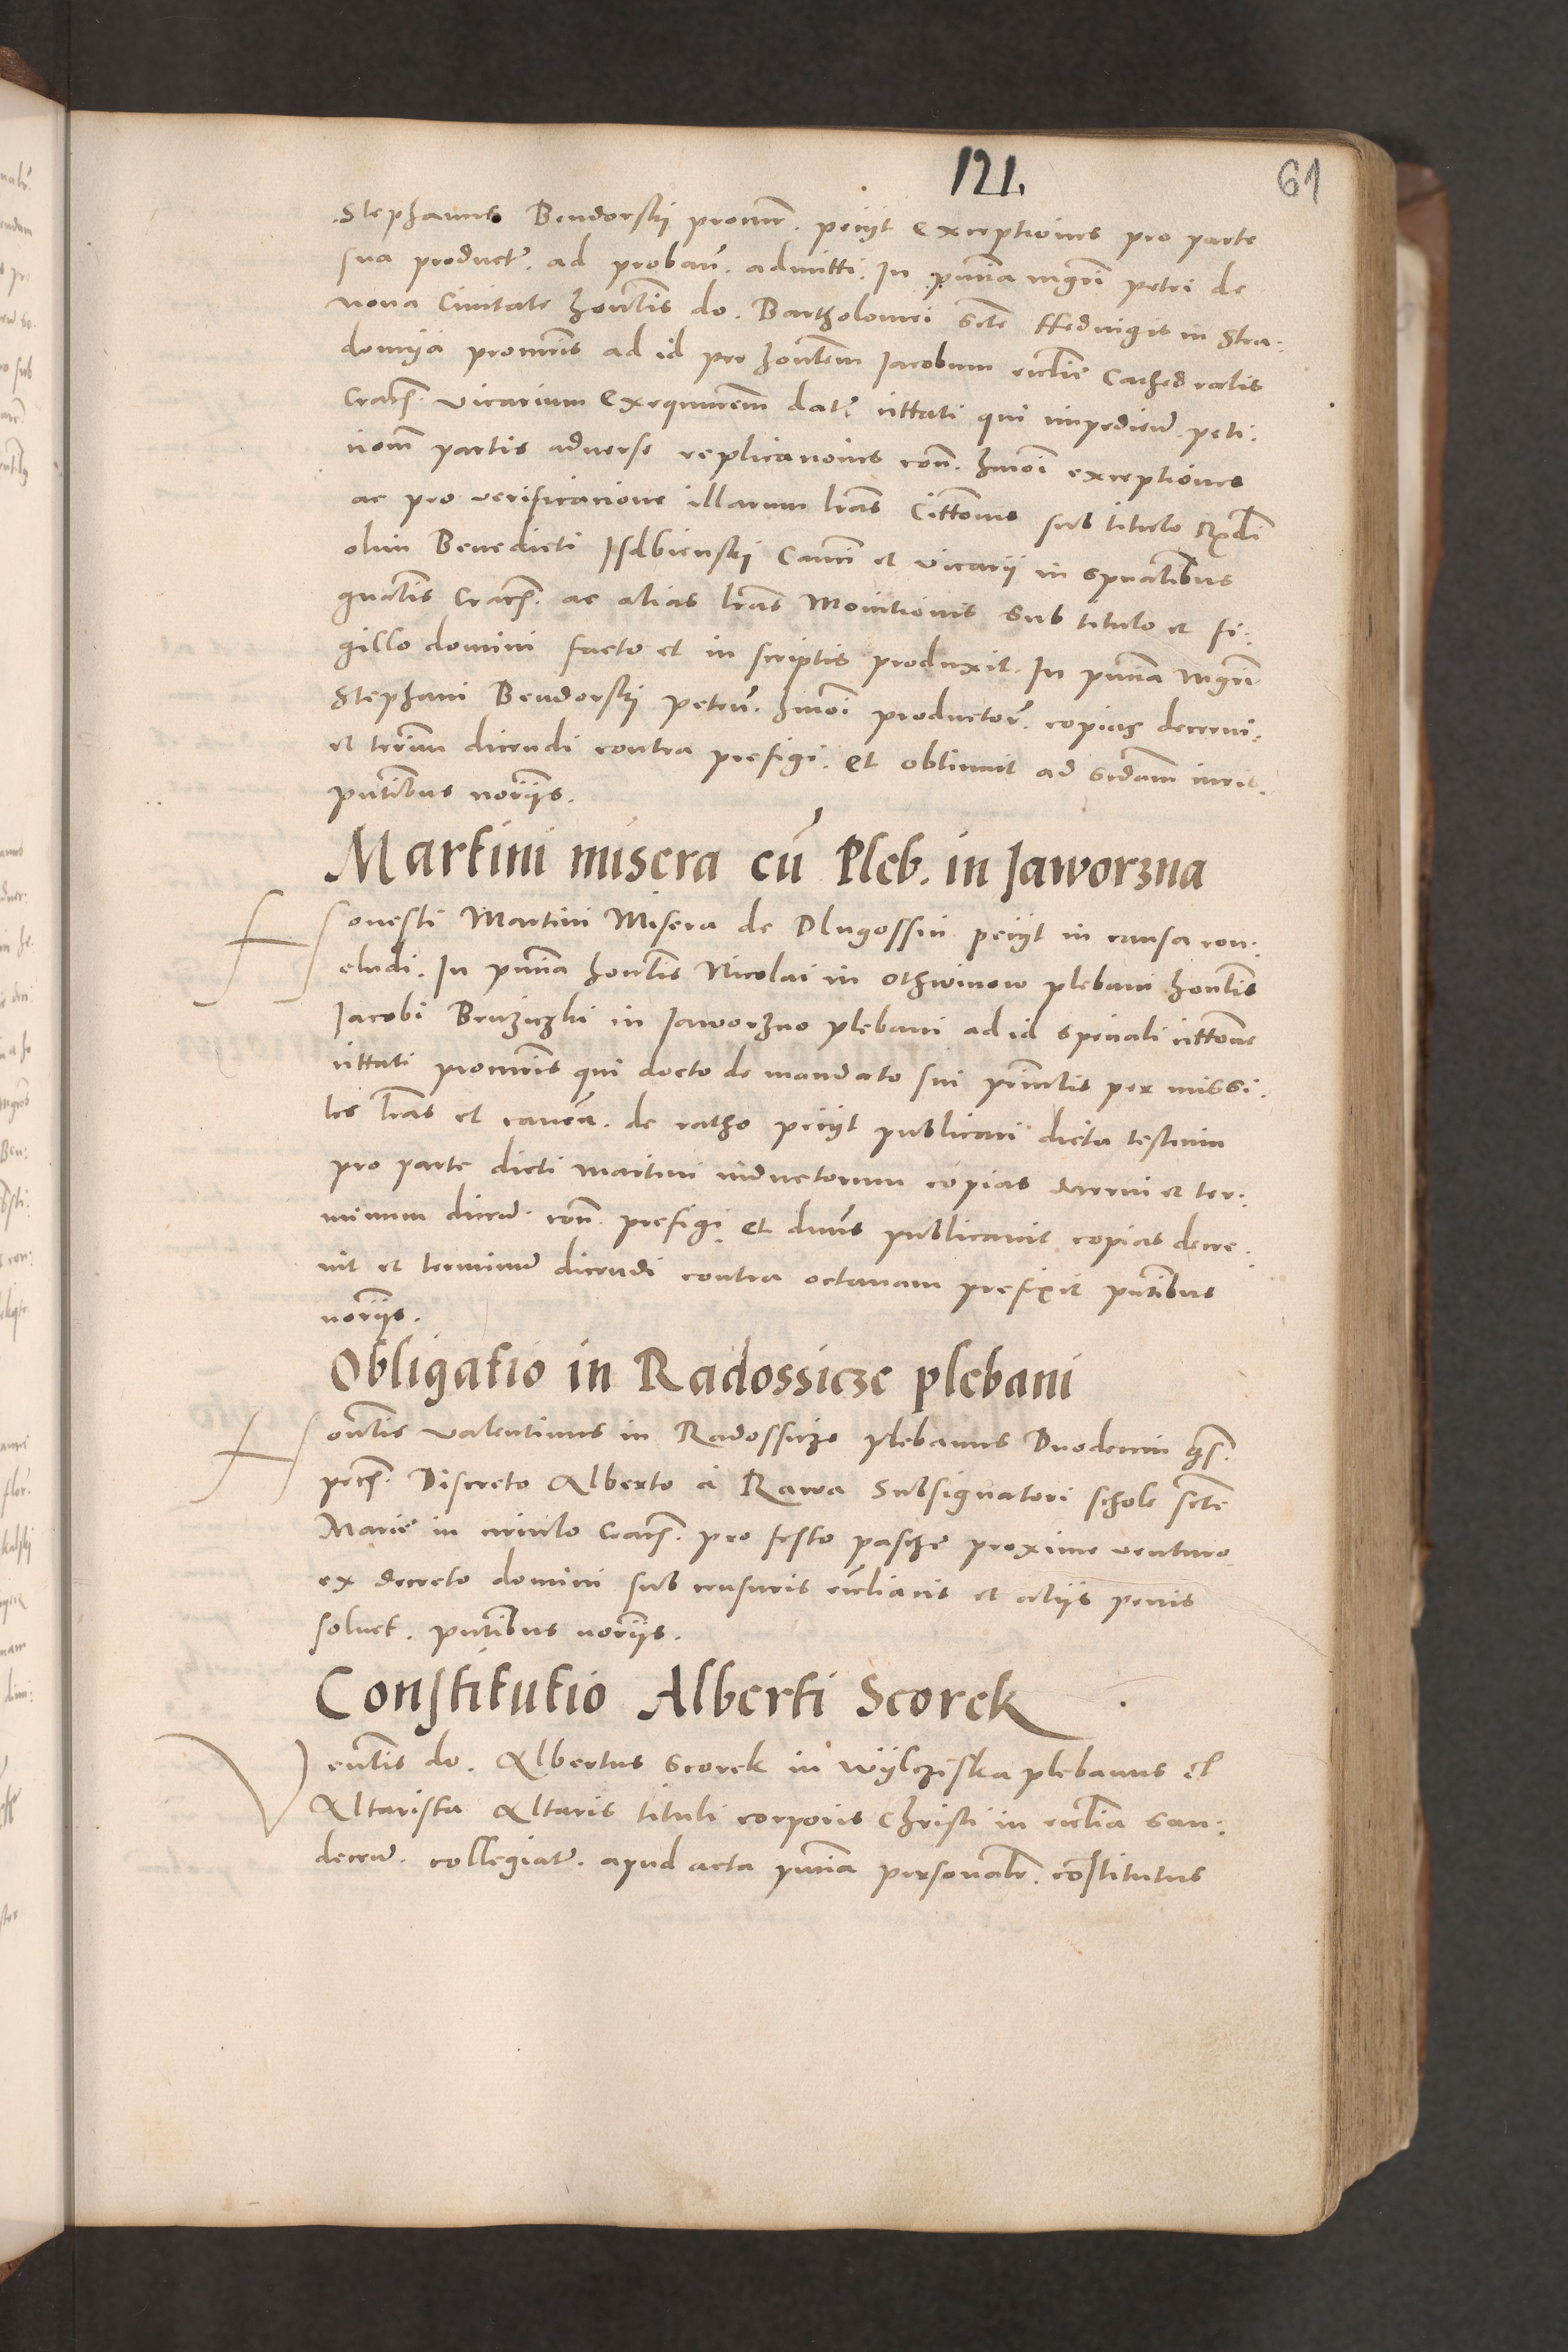 121.
61
Stephanus Bendorski procur. petijt exceptiones pro parte
sua product. ad proban. admitti. In pntia mgri petri de
noua Ciuitate honlis do. Bartholomei scte Hedwigis in Stra:
domija procuris ad id per honlem Jacobum ecclie Cathedralis
Cracs. vicarium Exequutorem dat. cittati qui impedien. peti:
cionem partis aduerse replicaciones con. hmoi exceptiones
ac pro verificacione illarum lras Cittonis sub titulo Rdi
olim Benedicti Isdbienski Canci et vicarij in spualibus
gnalis Cracs. ac alias lras Monitionis sub titulo et si:
gillo domini facto et in scriptis produxit. In pntia mgri
Stephani Bendorski peten. hmoi productor. copias decerni:
et terim dicendi contra prefigi. Et obtinuit ad sedam iuris.
pntibus norijs.
Martini misera cu Pleb. in Jaworzna
Honesti Martini Misera de Dlugossin petijt in causa con:
cludi. In pntia honlis Nicolai in Othwinow plebani honlis
Jacobi in Jaworzno plebani ad id speciali cittone
cittati procuris qui docto de mandato sui principlis per missi:
les lras et de ratho petijt publicari dicta testium
pro parte dicti martini inductorum copias decerni et ter:
minum dicen. con. prefigi. Et dnus publicauit copias decre:
uit et terminum dicendi contra octauam prefixit pntibus
norijs.
Obligatio in Radossicze plebani
Honlis valentinus in Radossicze plebanus Duodecim gs.
pecs. Discreto Alberto a Rawa Subsignatori schole scte
Marie in circulo Cracs. pro festo pasche proxime venturo
ex decreto domini sub censuris ecclianis et alijs penis
soluet. pntibus norijs.
Constitutio Alberti Scorek
Venlis do. Albertus Scorek in wylcziska plebanus et
Altarista Altaris tituli corporis Christi in ecclia San:
decen. collegiat. apud acta pntia personalr. constitutus